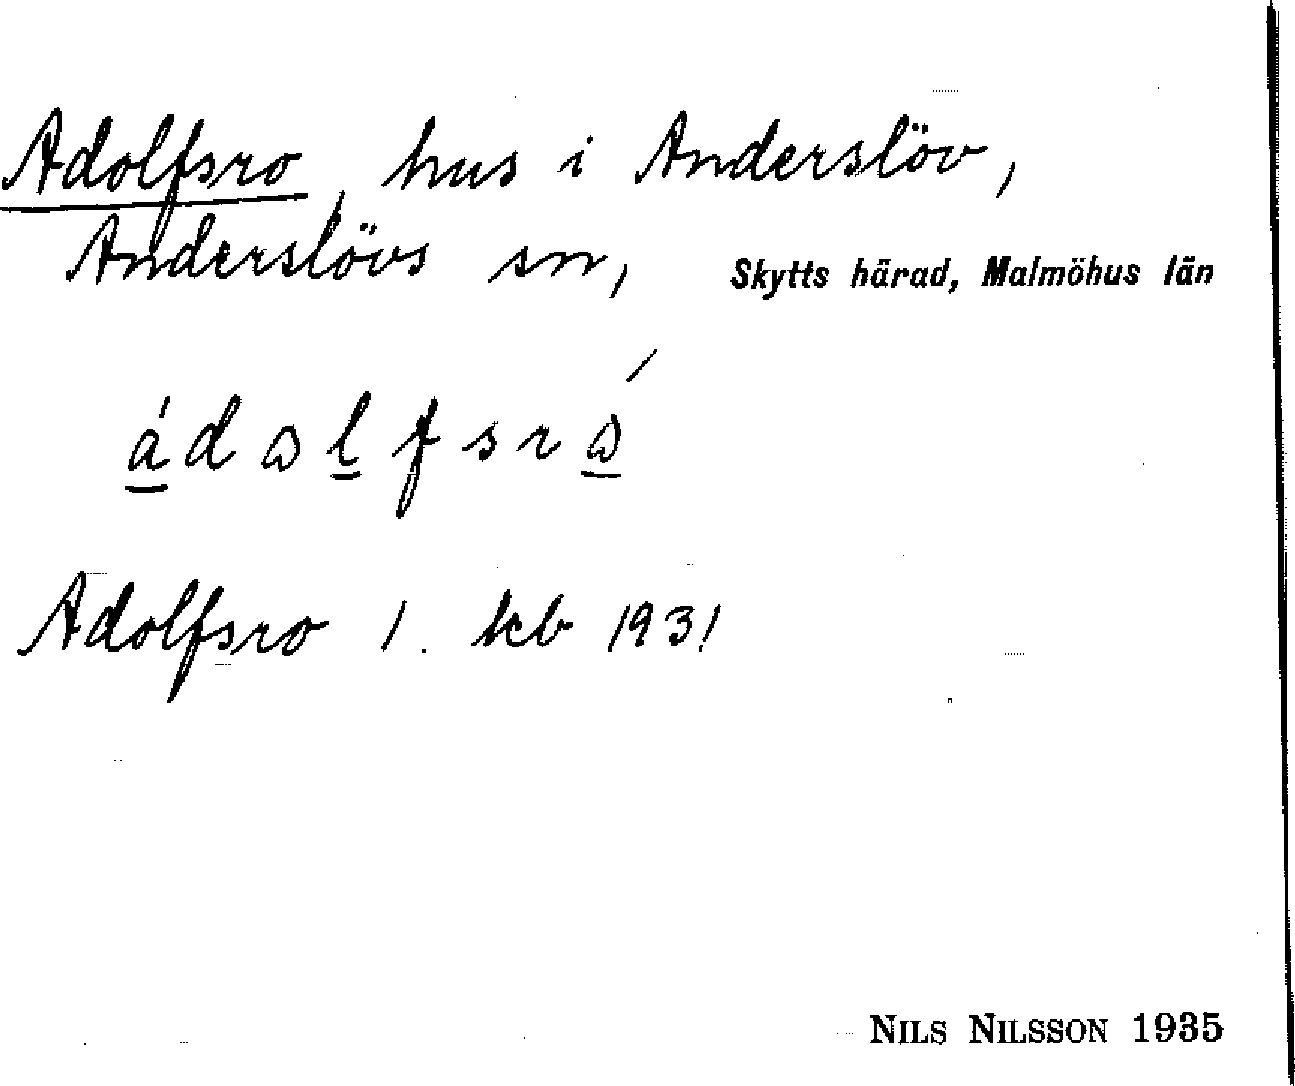 Adolfsro, hus i Anderslöv,
Anderslövs sn, Skytts härad, Malmöhus län
ádɷlfsrɷ́
Adolfsro 1. kb 1931
NILS NILSSON 1935